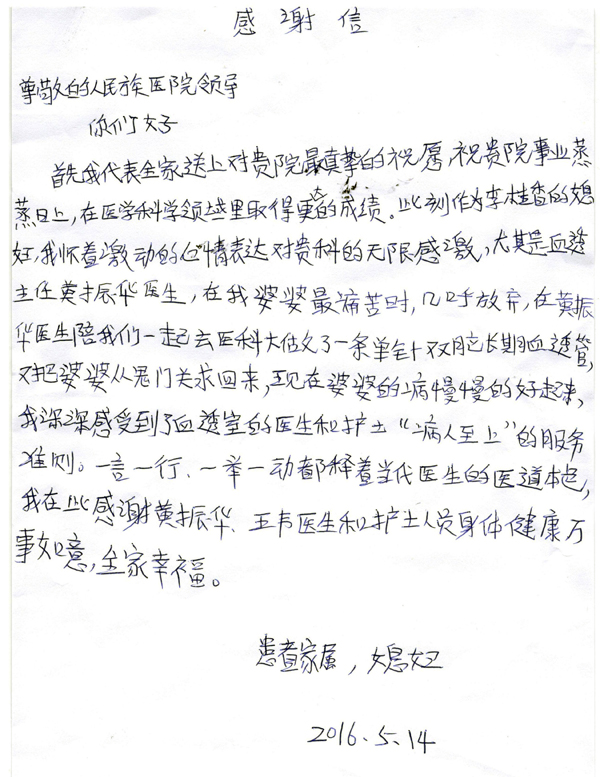 感谢信
尊敬的人民族医院领导
你们好
首先我代表全家送上对贵院最真挚的祝愿,祝贵院事业蒸
蒸日上,在医学科学领域里取得更大的成绩。此刻作为李桂香的媳
妇,我怀着激动的心情表达对贵科的无限感激,尤其是血透
主任黄振华医生,在我婆婆最痛苦时,几乎放弃,在黄振
华医生陪我们一起去医科大估文了一条单针双腔长期血透管,
才把婆婆从鬼门关求回来,现在婆婆的病慢慢的好起来,
我深深感受到了血透室的医生和护士“病人至上”的服务
准则。一言一行、一举一动都释着当代医生的医道本色,
我在此感谢黄振华、王韦医生和护士人员身体健康万
事如意,全家幸福。
患者家属,媳妇
2016.5.14